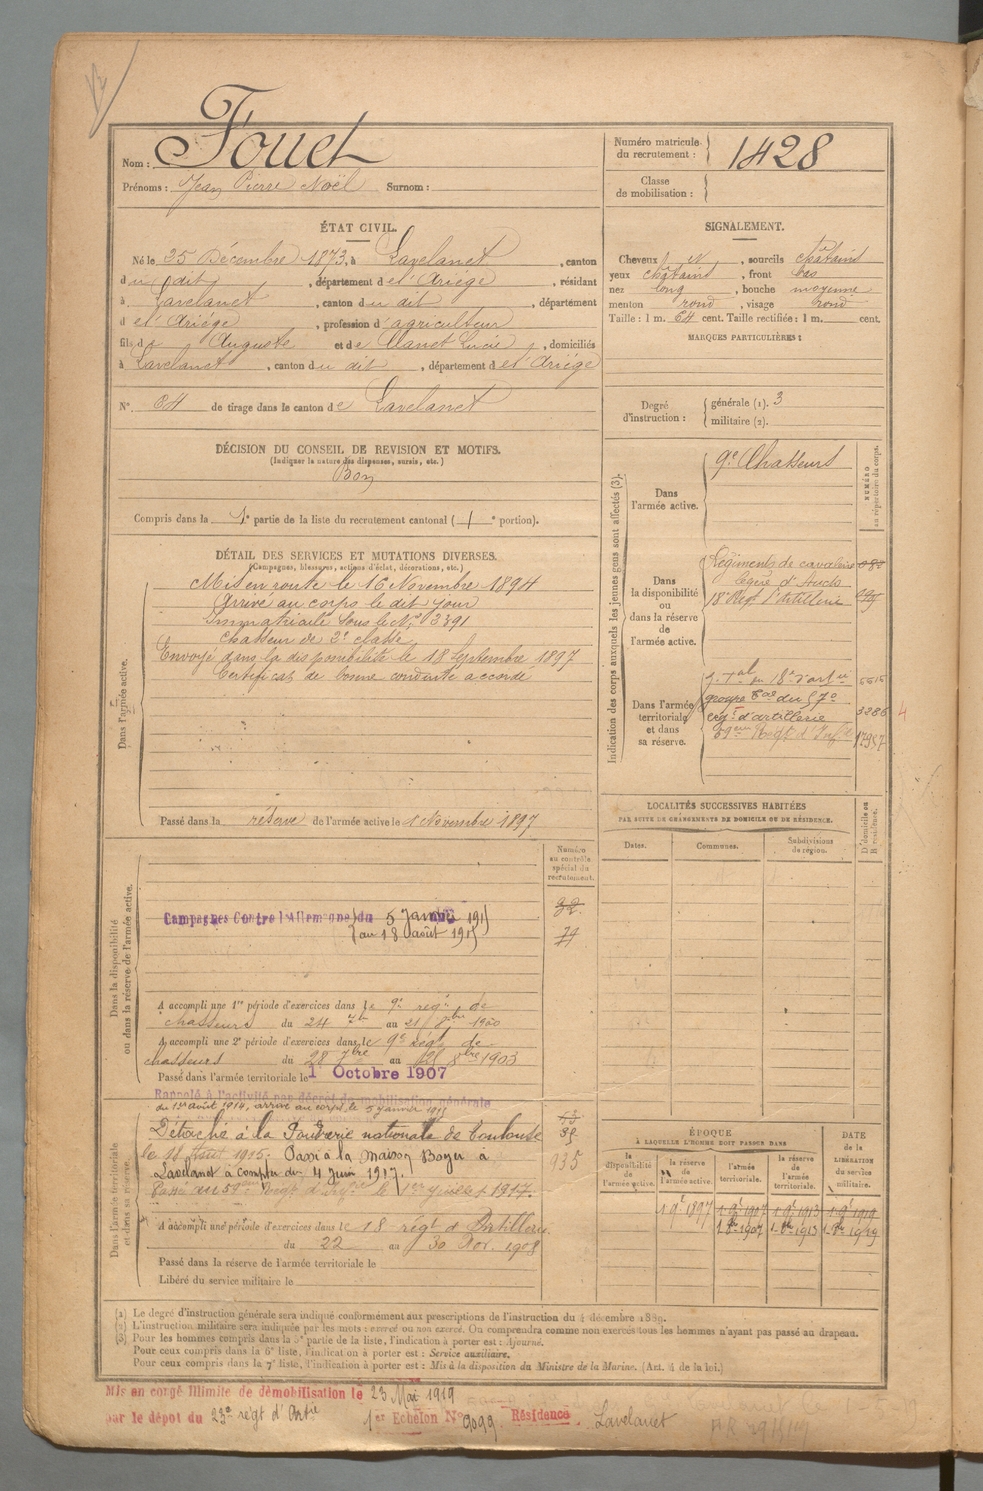 Nom : Fouet
Prénoms : Jean Pierre Noël Surnom :
Numéro matricule du recrutement : 1428
Classe de mobilisation :
ÉTAT CIVIL.
Né le 25 Décembre 1873, à Lavelanet, canton
du dit, département de l'Ariège, résidant
à Lavelanet, canton du dit, département
de l'Ariège, profession d'agriculteur
fils de Auguste et de Clanet Lucie, domiciliés
à Lavelanet, canton du dit, département de l'Ariège
N° 64 de tirage dans le canton de Lavelanet
SIGNALEMENT.
Cheveux et, sourcils châtains
yeux châtains, front bas
nez long, bouche moyenne
menton rond, visage rond
Taille : 1 m. 64 cent. Taille rectifiée : 1 m. cent.
MARQUES PARTICULIÈRES :
Degré d'instruction : générale (1). 3
militaire (2).
DÉCISION DU CONSEIL DE REVISION ET MOTIFS.
(Indiquer la nature des dispenses, sursis, etc.)
Bon
Compris dans la 1e partie de la liste du recrutement cantonal ( 1 e portion).
DÉTAIL DES SERVICES ET MUTATIONS DIVERSES.
(Campagnes, blessures, actions d'éclat, décorations, etc.)
Dans l'armée active.
Mis en route le 16 Novembre 1894
Arrivé au corps le dit jour
Immatriculé sous le N° 3391
Chasseur de 2e classe
Envoyé dans la disponibilité le 18 Septembre 1897
Certificat de bonne conduite accordé
Passé dans la réserve de l'armée active le 1 Novembre 1897
Indication des corps auxquels les jeunes gens sont affectés (3).
NUMÉRO au répertoire du corps.
Dans l'armée active.
9e Chasseurs
Dans la disponibilité ou dans la réserve de l'armée active.
Régiments de cavalerie
légère d'Auch
18e Régt d'Artillerie
Dans l'armée territoriale et dans sa réserve.
groupe du 57e
d'artillerie 3286 4
59eme Régt d'Infie 17957
LOCALITÉS SUCCESSIVES HABITÉES
PAR SUITE DE CHANGEMENTS DE DOMICILE OU DE RÉSIDENCE.
Dates. Communes. Subdivisions de région. D. domicile ou R. résidence.
Dans la disponibilité ou dans la réserve de l'armée active.
Numéro au contrôle spécial du recrutement.
Campagnes Contre l'Allemagne du 5 Janvier 1915
au 18 août 1915
A accompli une 1re période d'exercices dans le 9e régt de
chasseurs du 24 7bre au 21 8bre 1900
A accompli une 2e période d'exercices dans le 9e régt de
chasseurs du 28 7bre au 8bre 1903
Passé dans l'armée territoriale le 1 Octobre 1907
Dans l'armée territoriale et dans sa réserve.
Rappelé à l'activité par décret de mobilisation générale
du 1er août 1914, arrivé au corps le 5 janvier 1915
Détaché à la Poudrerie nationale de Toulouse
le 18 Août 1915. Passé à la maison Boyer à
Lavelanet à compter du 4 juin 1917.
Passé au 59eme Régt d'Infie le 1er juillet 1917.
935
A accompli une période d'exercices dans le 18 régt d'Artillerie
du 22 au 30 Nov. 1908
Passé dans la réserve de l'armée territoriale le
Libéré du service militaire le
ÉPOQUE
À LAQUELLE L'HOMME DOIT PASSER DANS
la disponibilité de l'armée active. la réserve de l'armée active. l'armée territoriale. la réserve de l'armée territoriale.
DATE de la LIBÉRATION du service militaire.
1 9e 1897 1 9e 1907 1 9e 1913 1 9e 1919
1 8bre 1907 1 8bre 1913 1 8bre 1919
(1) Le degré d'instruction générale sera indiqué conformément aux prescriptions de l'instruction du 4 décembre 1889.
(2) L'instruction militaire sera indiquée par les mots : exercé ou non exercé. On comprendra comme non exercés tous les hommes n'ayant pas passé au drapeau.
(3) Pour les hommes compris dans la 5e partie de la liste, l'indication à porter est : Ajourné.
Pour ceux compris dans la 6e liste, l'indication à porter est : Service auxiliaire.
Pour ceux compris dans la 7e liste, l'indication à porter est : Mis à la disposition du Ministre de la Marine. (Art. 4 de la loi.)
Mis en congé illimité de démobilisation le 23 Mai 1919
par le dépot du 23e régt d'Artie 1er Echelon N° 9099 Résidence Lavelanet